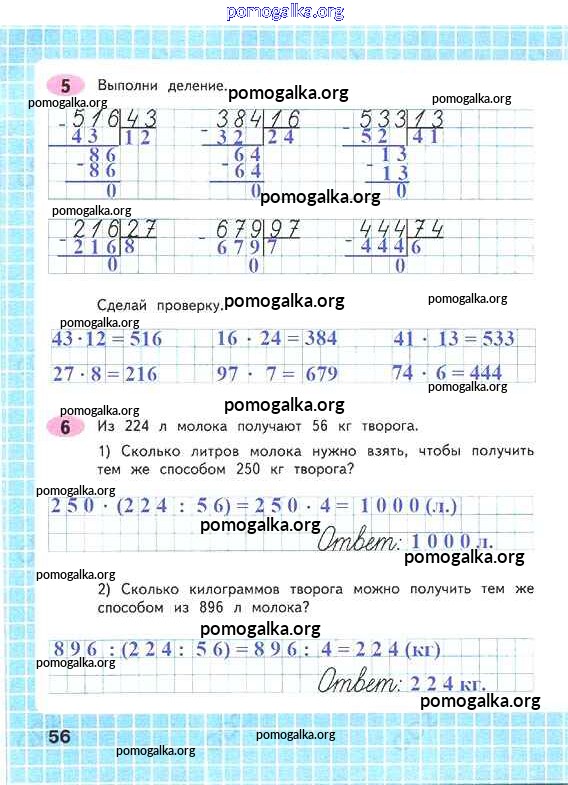 pomogalka.org
5 Выполни деление.
pomogalka.org pomogalka.org pomogalka.org
516 43 384 16 533 13
- 43 12 - 32 24 - 52 41
86 64 13
- 86 - 64 - 13
0 0 0
pomogalka.org
pomogalka.org
216 27 679 97 444 74
- 216 8 - 679 7 - 444 6
0 0 0
Сделай проверку. pomogalka.org pomogalka.org
pomogalka.org
43 · 12 = 516 16 · 24 = 384 41 · 13 = 533
27 · 8 = 216 97 · 7 = 679 74 · 6 = 444
pomogalka.org
pomogalka.org
pomogalka.org
6 Из 224 л молока получают 56 кг творога.
1) Сколько литров молока нужно взять, чтобы получить
тем же способом 250 кг творога?
pomogalka.org
250 · (224 : 56) = 250 · 4 = 1000 (л.)
pomogalka.org
Ответ: 1000 л.
pomogalka.org
pomogalka.org
2) Сколько килограммов творога можно получить тем же
способом из 896 л молока?
pomogalka.org
896 : (224 : 56) = 896 : 4 = 224 (кг)
pomogalka.org
Ответ: 224 кг.
pomogalka.org
56 pomogalka.org
pomogalka.org